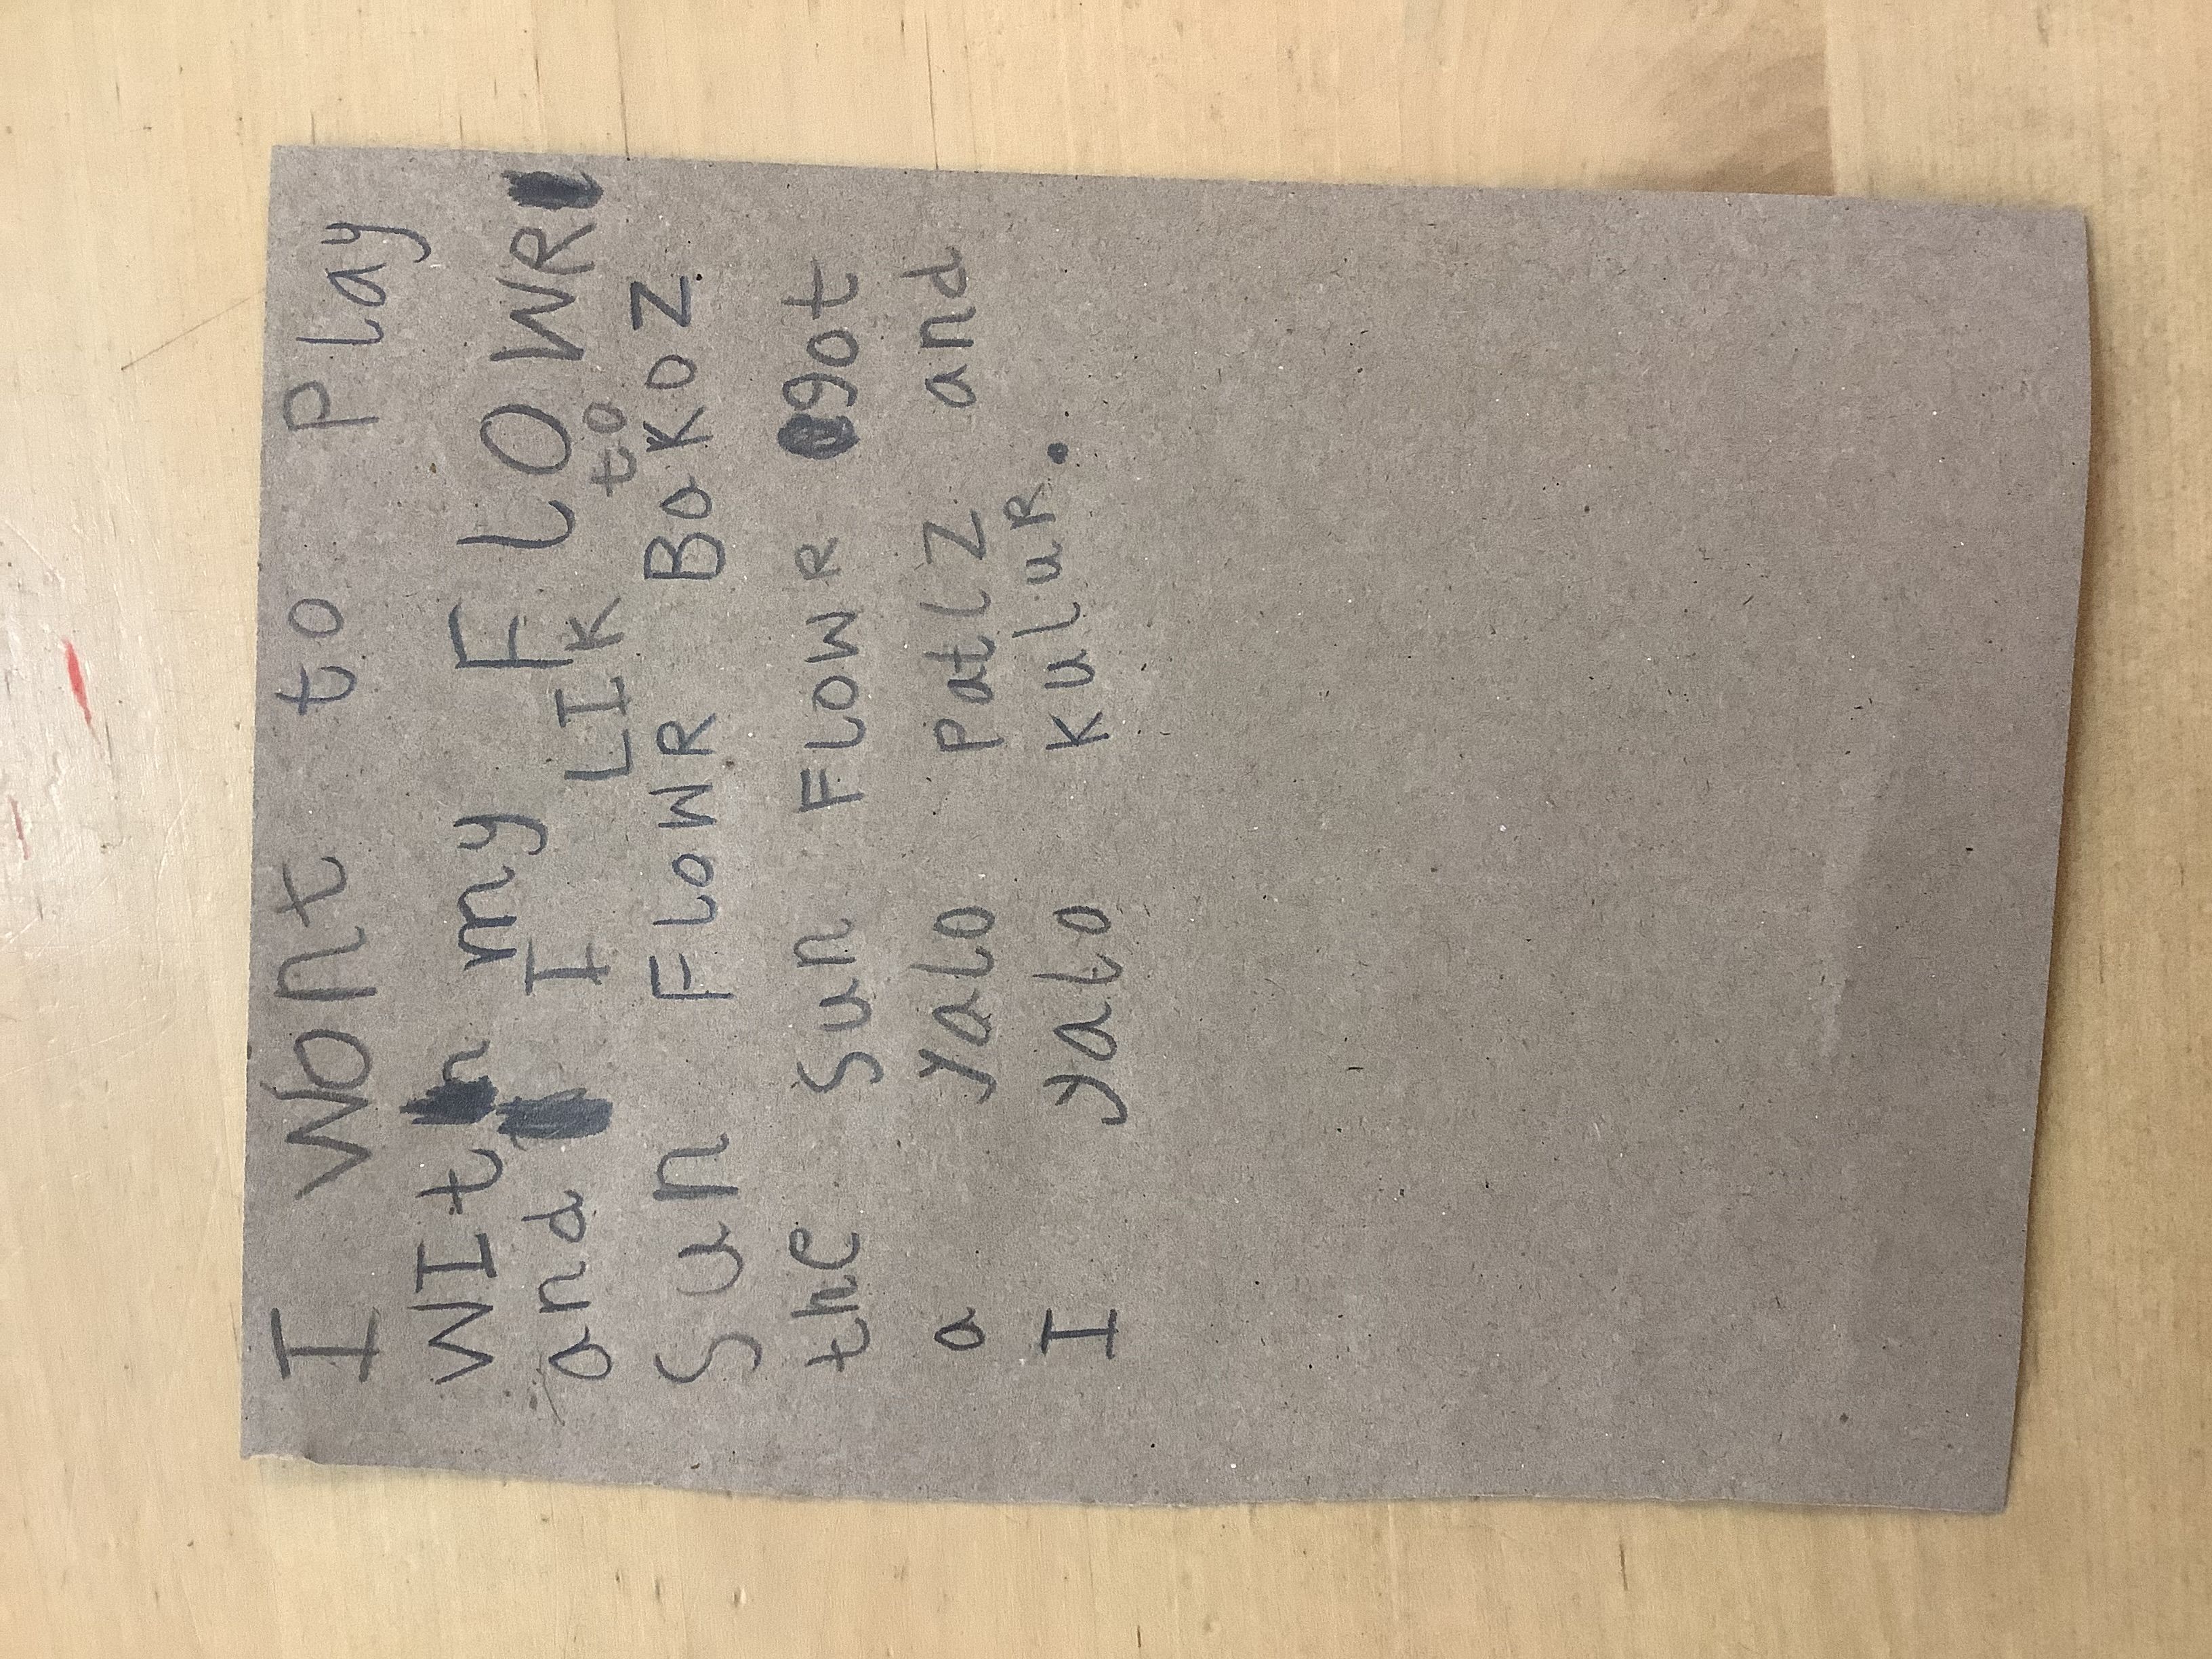 I WONt to Play
WIth my FLOWR
and I LIK to
Sun FLOWR BaKOZ
the Sun FLOWR got
a yaLO PatLZ and
I yaLO KuLuR.